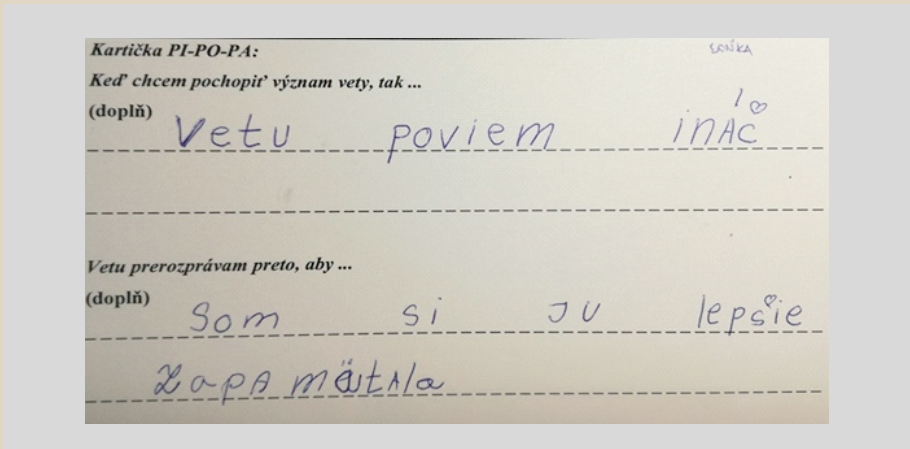 Kartička PI-PO-PA:
SOŇKA
Keď chcem pochopiť význam vety, tak ...
(doplň)
Vetu poviem ináč
Vetu prerozprávam preto, aby ...
(doplň)
Som si ju lepšie
zapamätala